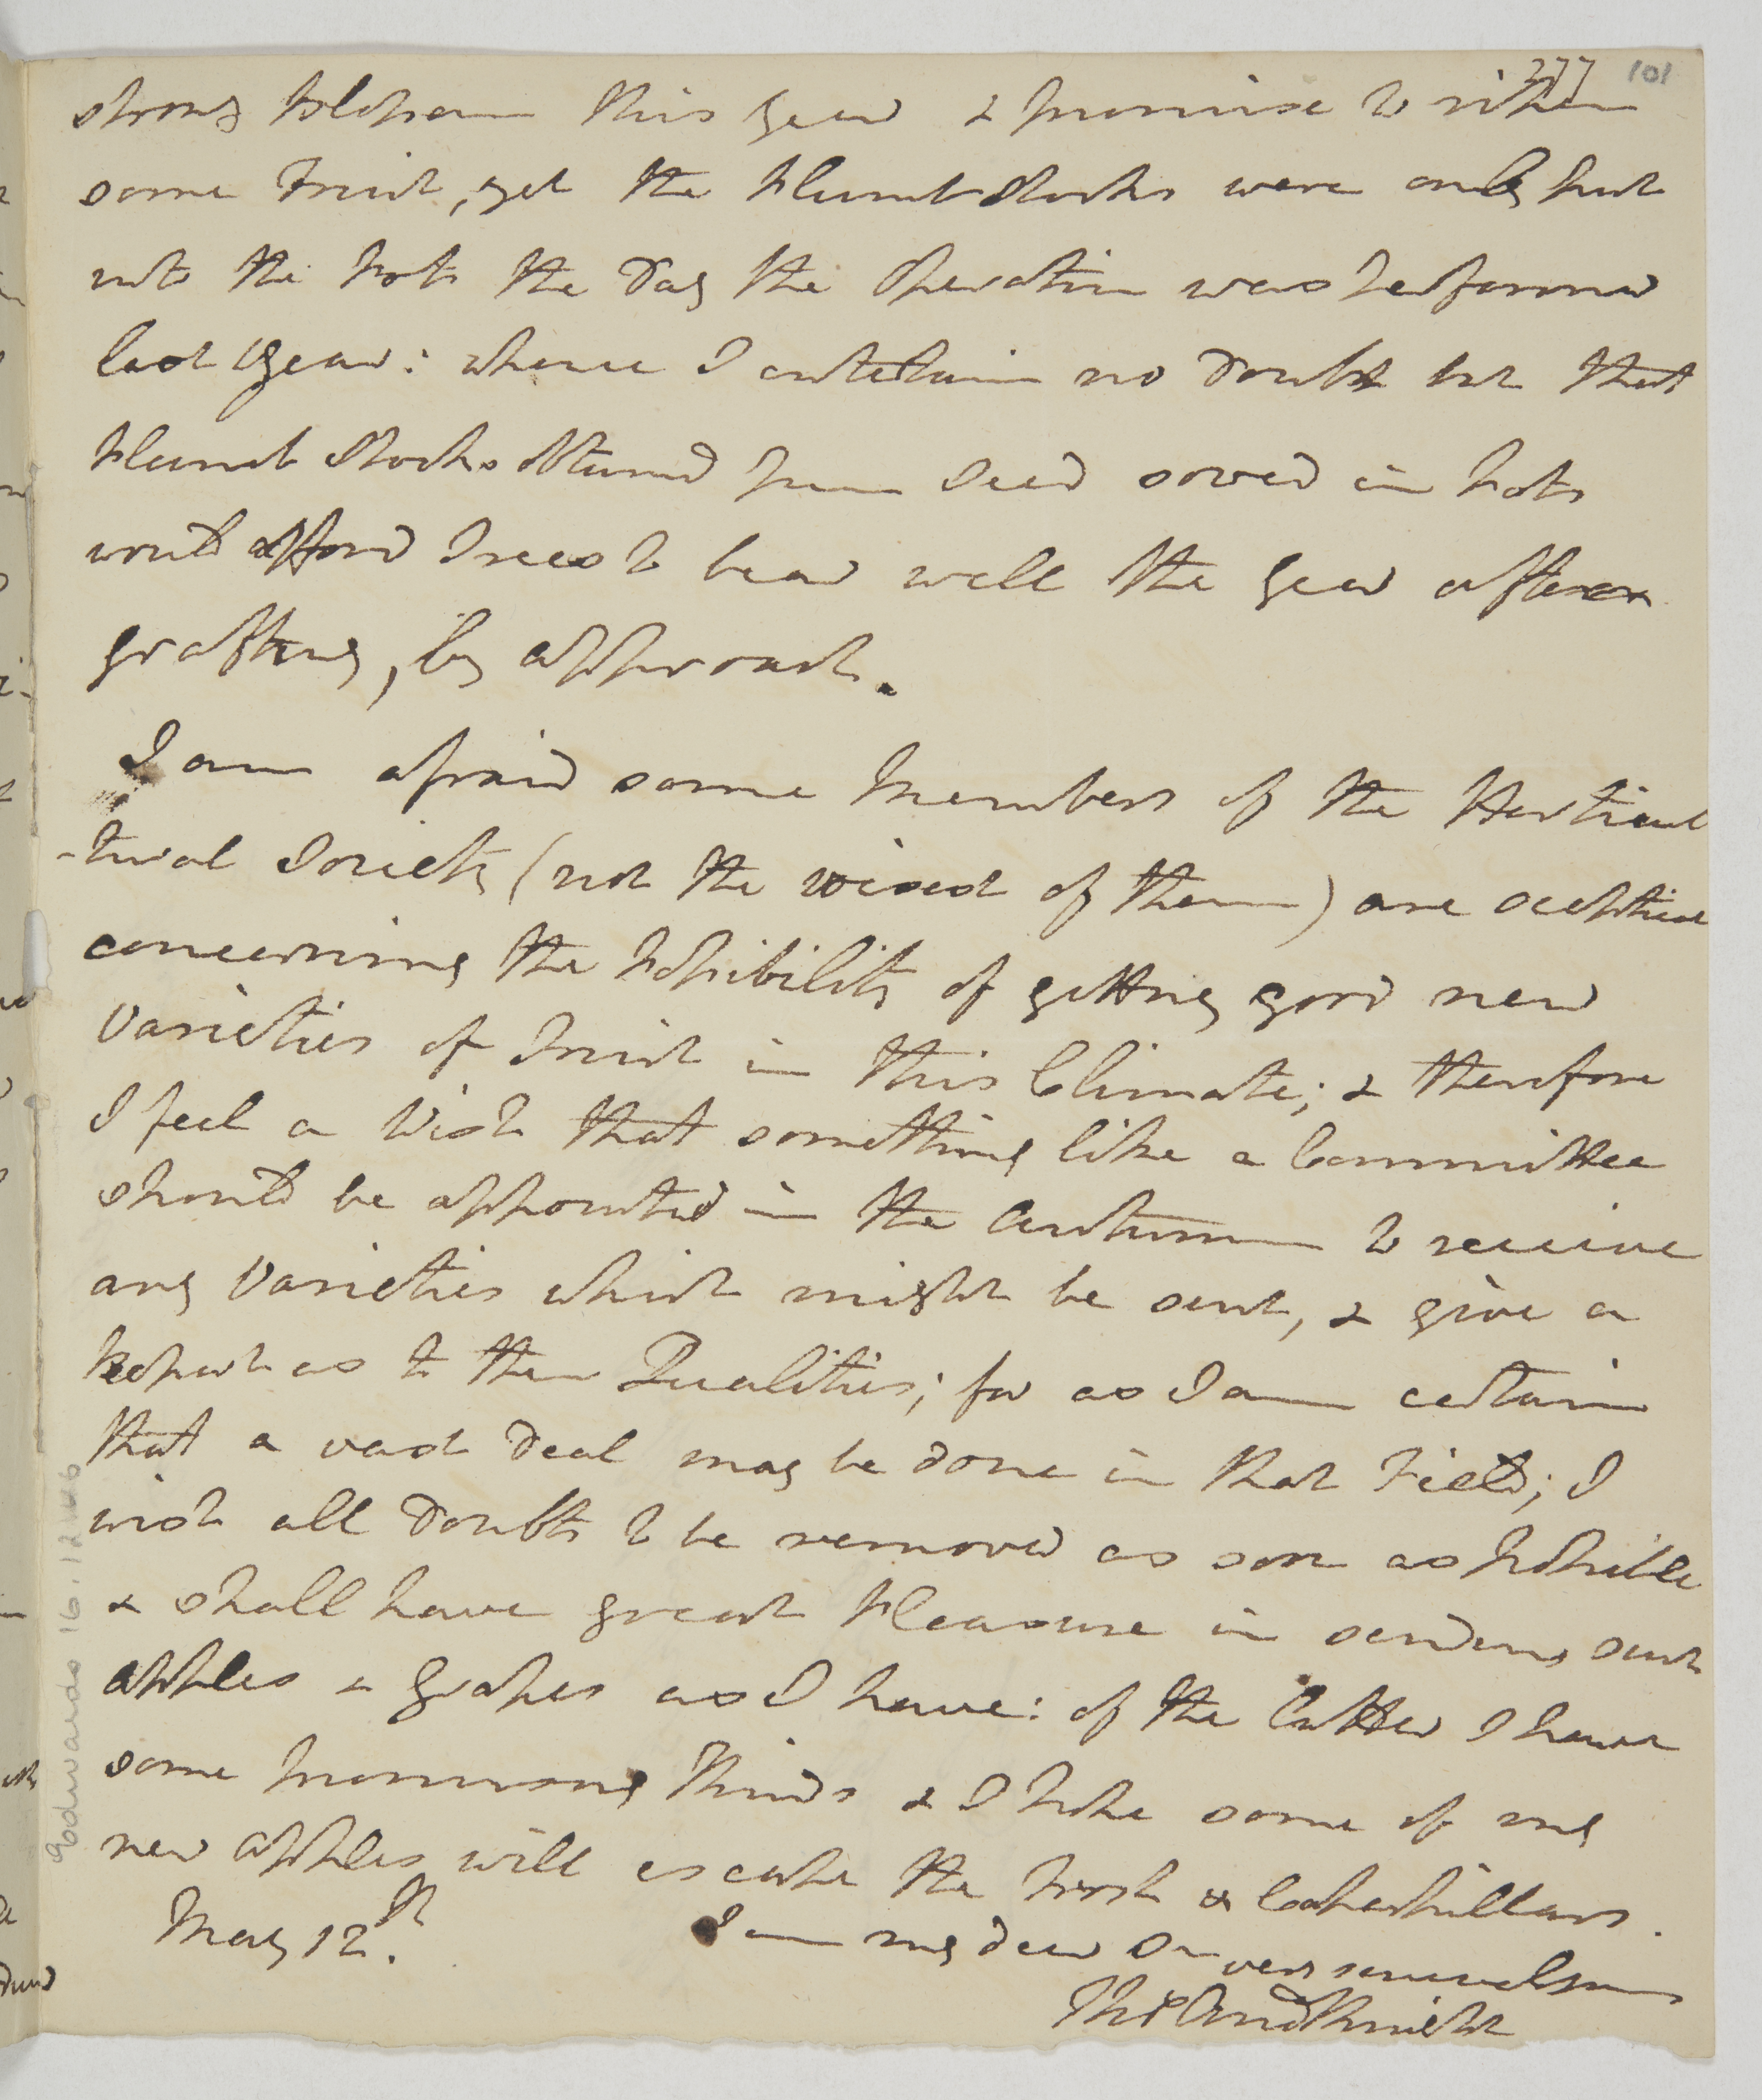 277 101
strong blossom this year & promise to ripen
some Fruit, yet the Plumb Stocks were only put
into the Pots the Day the Operation was performed
last year: whence I entertain no doubt but that
Plumb Stocks obtained from Seed sowed in Pots
would afford Trees to bear well the year after
grafting, by approach.
I am afraid some Members of the Horticul
-tural Society (not the wisest of them) are sceptical
concerning the Possibility of getting good new
Varieties of Fruit in this Climate; & therefore
I feel a Wish that something like a Committee
should be appointed in the Autumn to receive
any Varieties which might be sent, & give a
Report as to their Qualities; for as I am certain
that a vast deal may be done in that Field; I
wish all doubts to be removed as soon as possible
& shall have great Pleasure in sending such
apples & Grapes as I have: of the latter I have
some promising kinds & I hope some of my
new apples will escape the Frost & Caterpillars.
May 12th. I am my dear Sir very sincerely yours
Thos Andw Knight
Edwardes 16.12.46